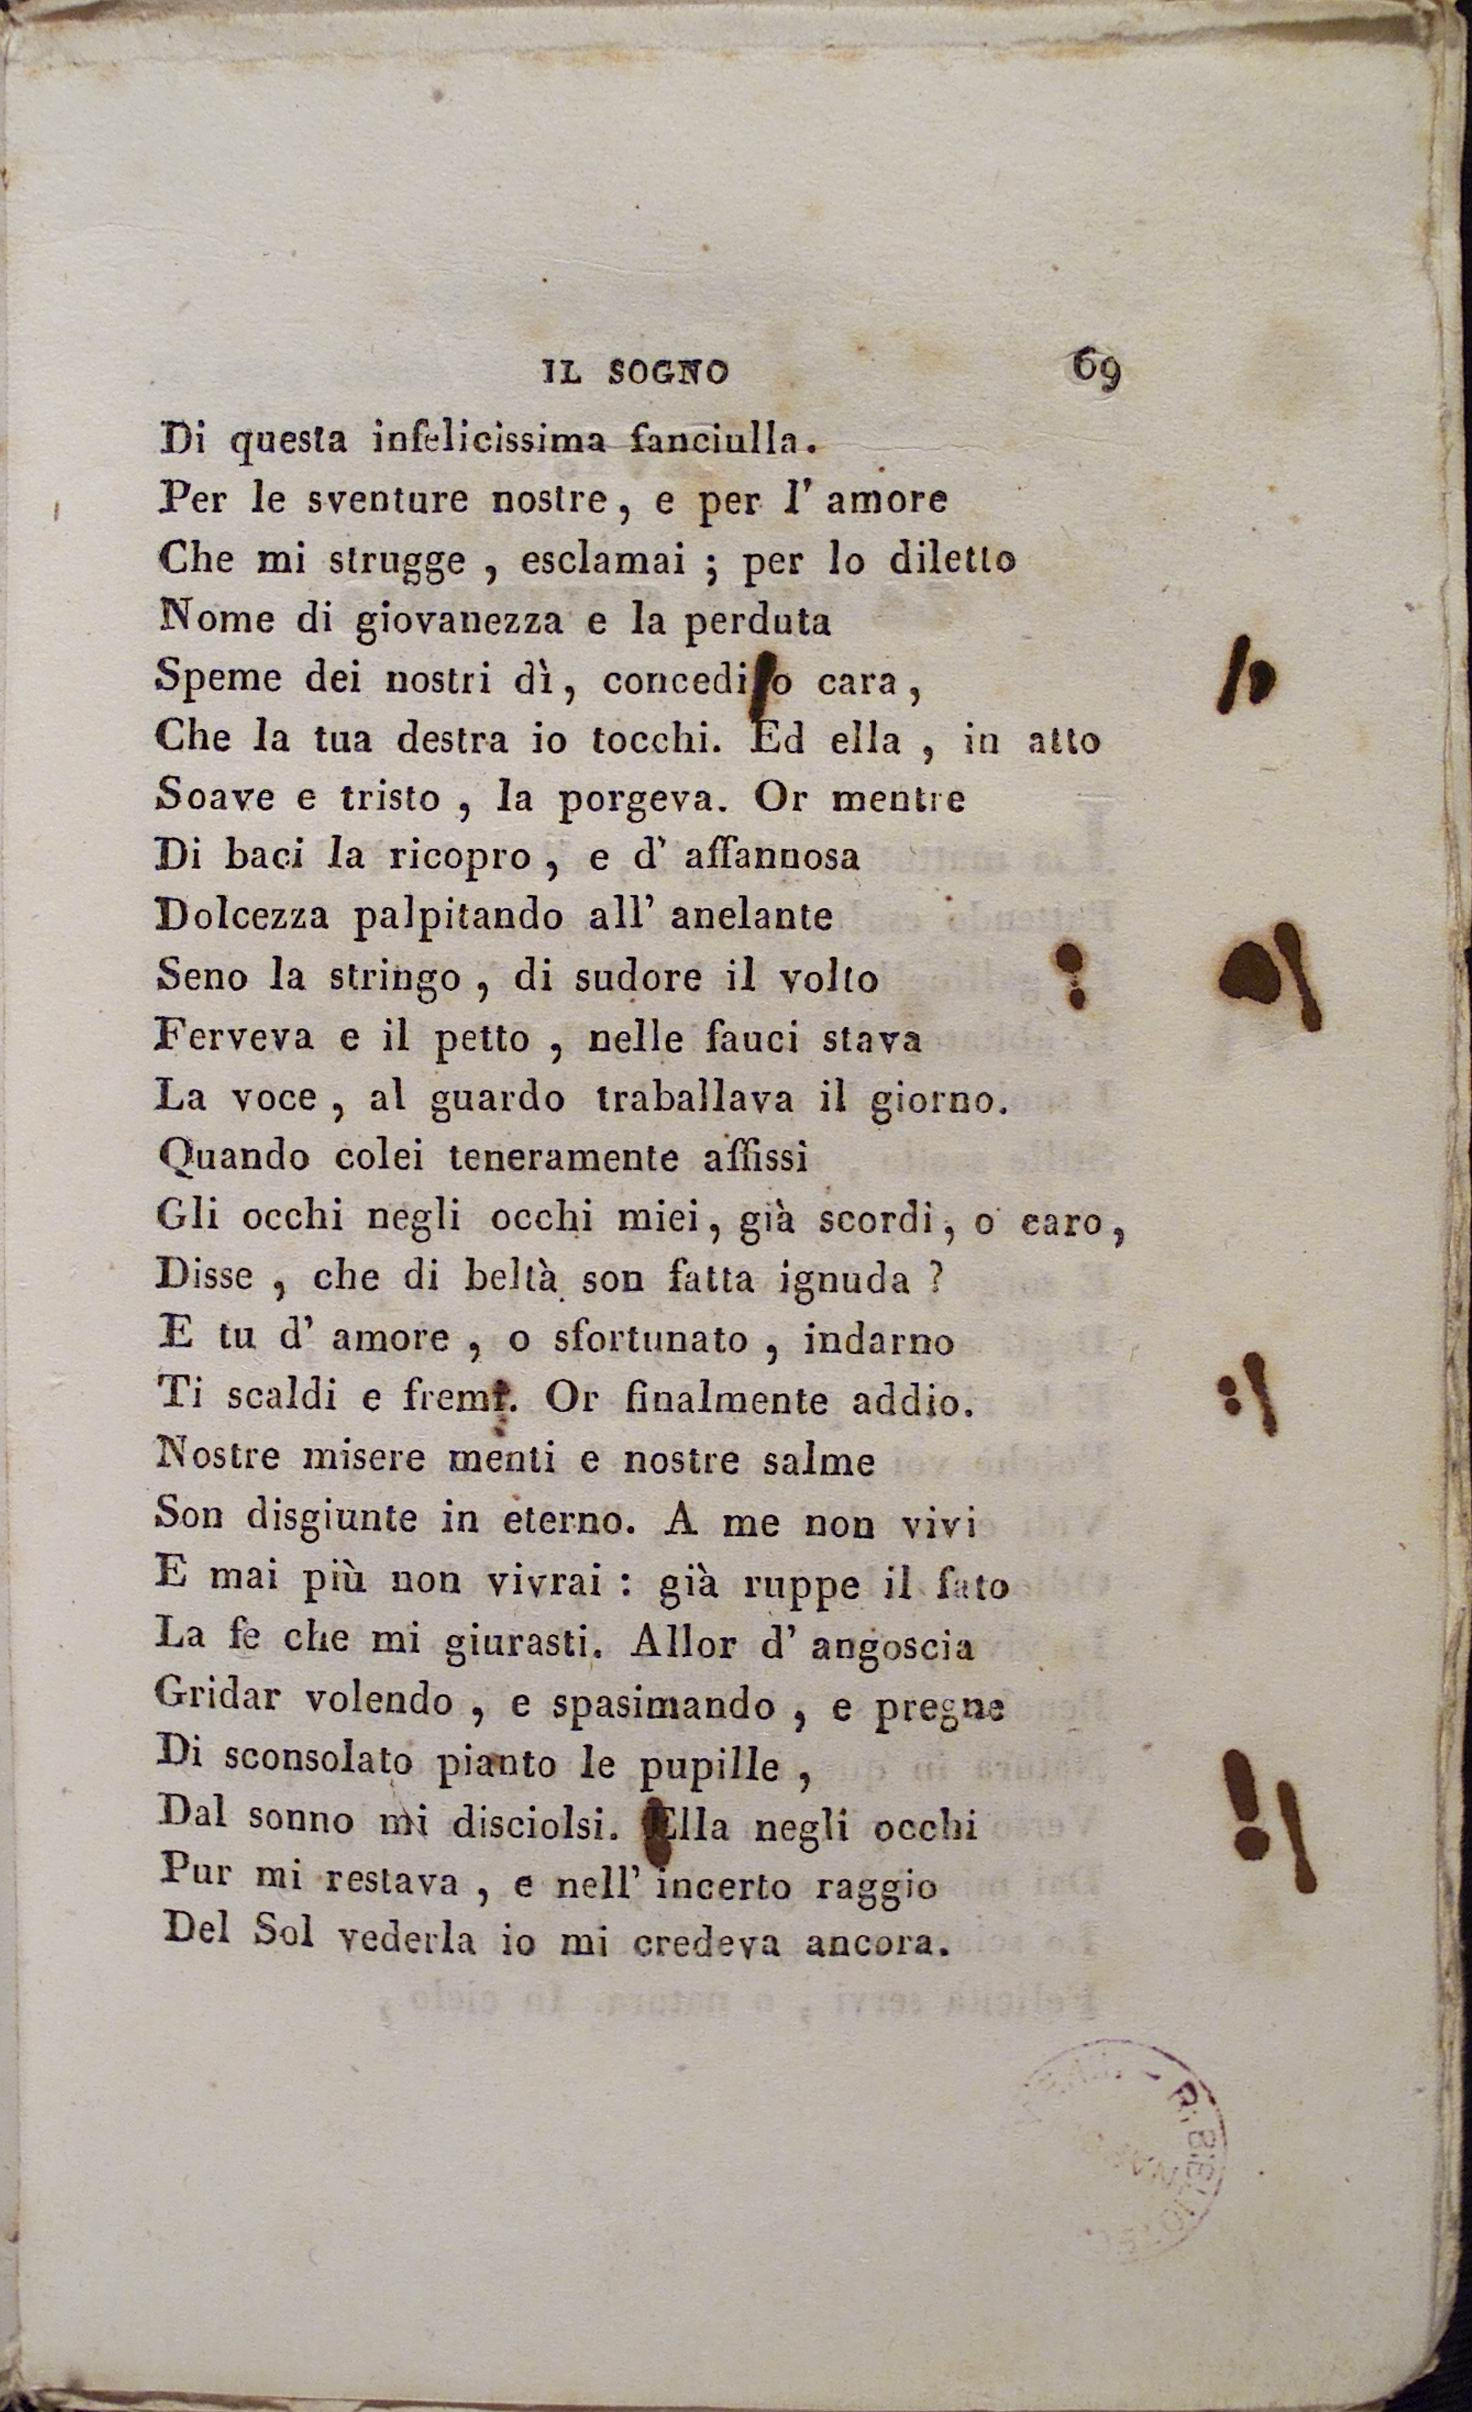 IL SOGNO 69
Di questa infelicissima fanciulla.
Per le sventure nostre, e per l' amore
Che mi strugge, esclamai; per lo diletto
Nome di giovanezza e la perduta
Speme dei nostri dì, concedi, o cara,
Che la tua destra io tocchi. Ed ella, in atto
Soave e tristo, la porgeva. Or mentre
Di baci la ricopro, e d' affannosa
Dolcezza palpitando all' anelante
Seno la stringo, di sudore il volto
Ferveva e il petto, nelle fauci stava
La voce, al guardo traballava il giorno.
Quando colei teneramente affissi
Gli occhi negli occhi miei, già scordi, o caro,
Disse, che di beltà son fatta ignuda?
E tu d' amore, o sfortunato, indarno
Ti scaldi e fremi. Or finalmente addio.
Nostre misere menti e nostre salme
Son disgiunte in eterno. A me non vivi
E mai più non vivrai: già ruppe il fato
La fe che mi giurasti. Allor d' angoscia
Gridar volendo, e spasimando, e pregne
Di sconsolato pianto le pupille,
Dal sonno mi disciolsi. Ella negli occhi
Pur mi restava, e nell' incerto raggio
Del Sol vederla io mi credeva ancora.